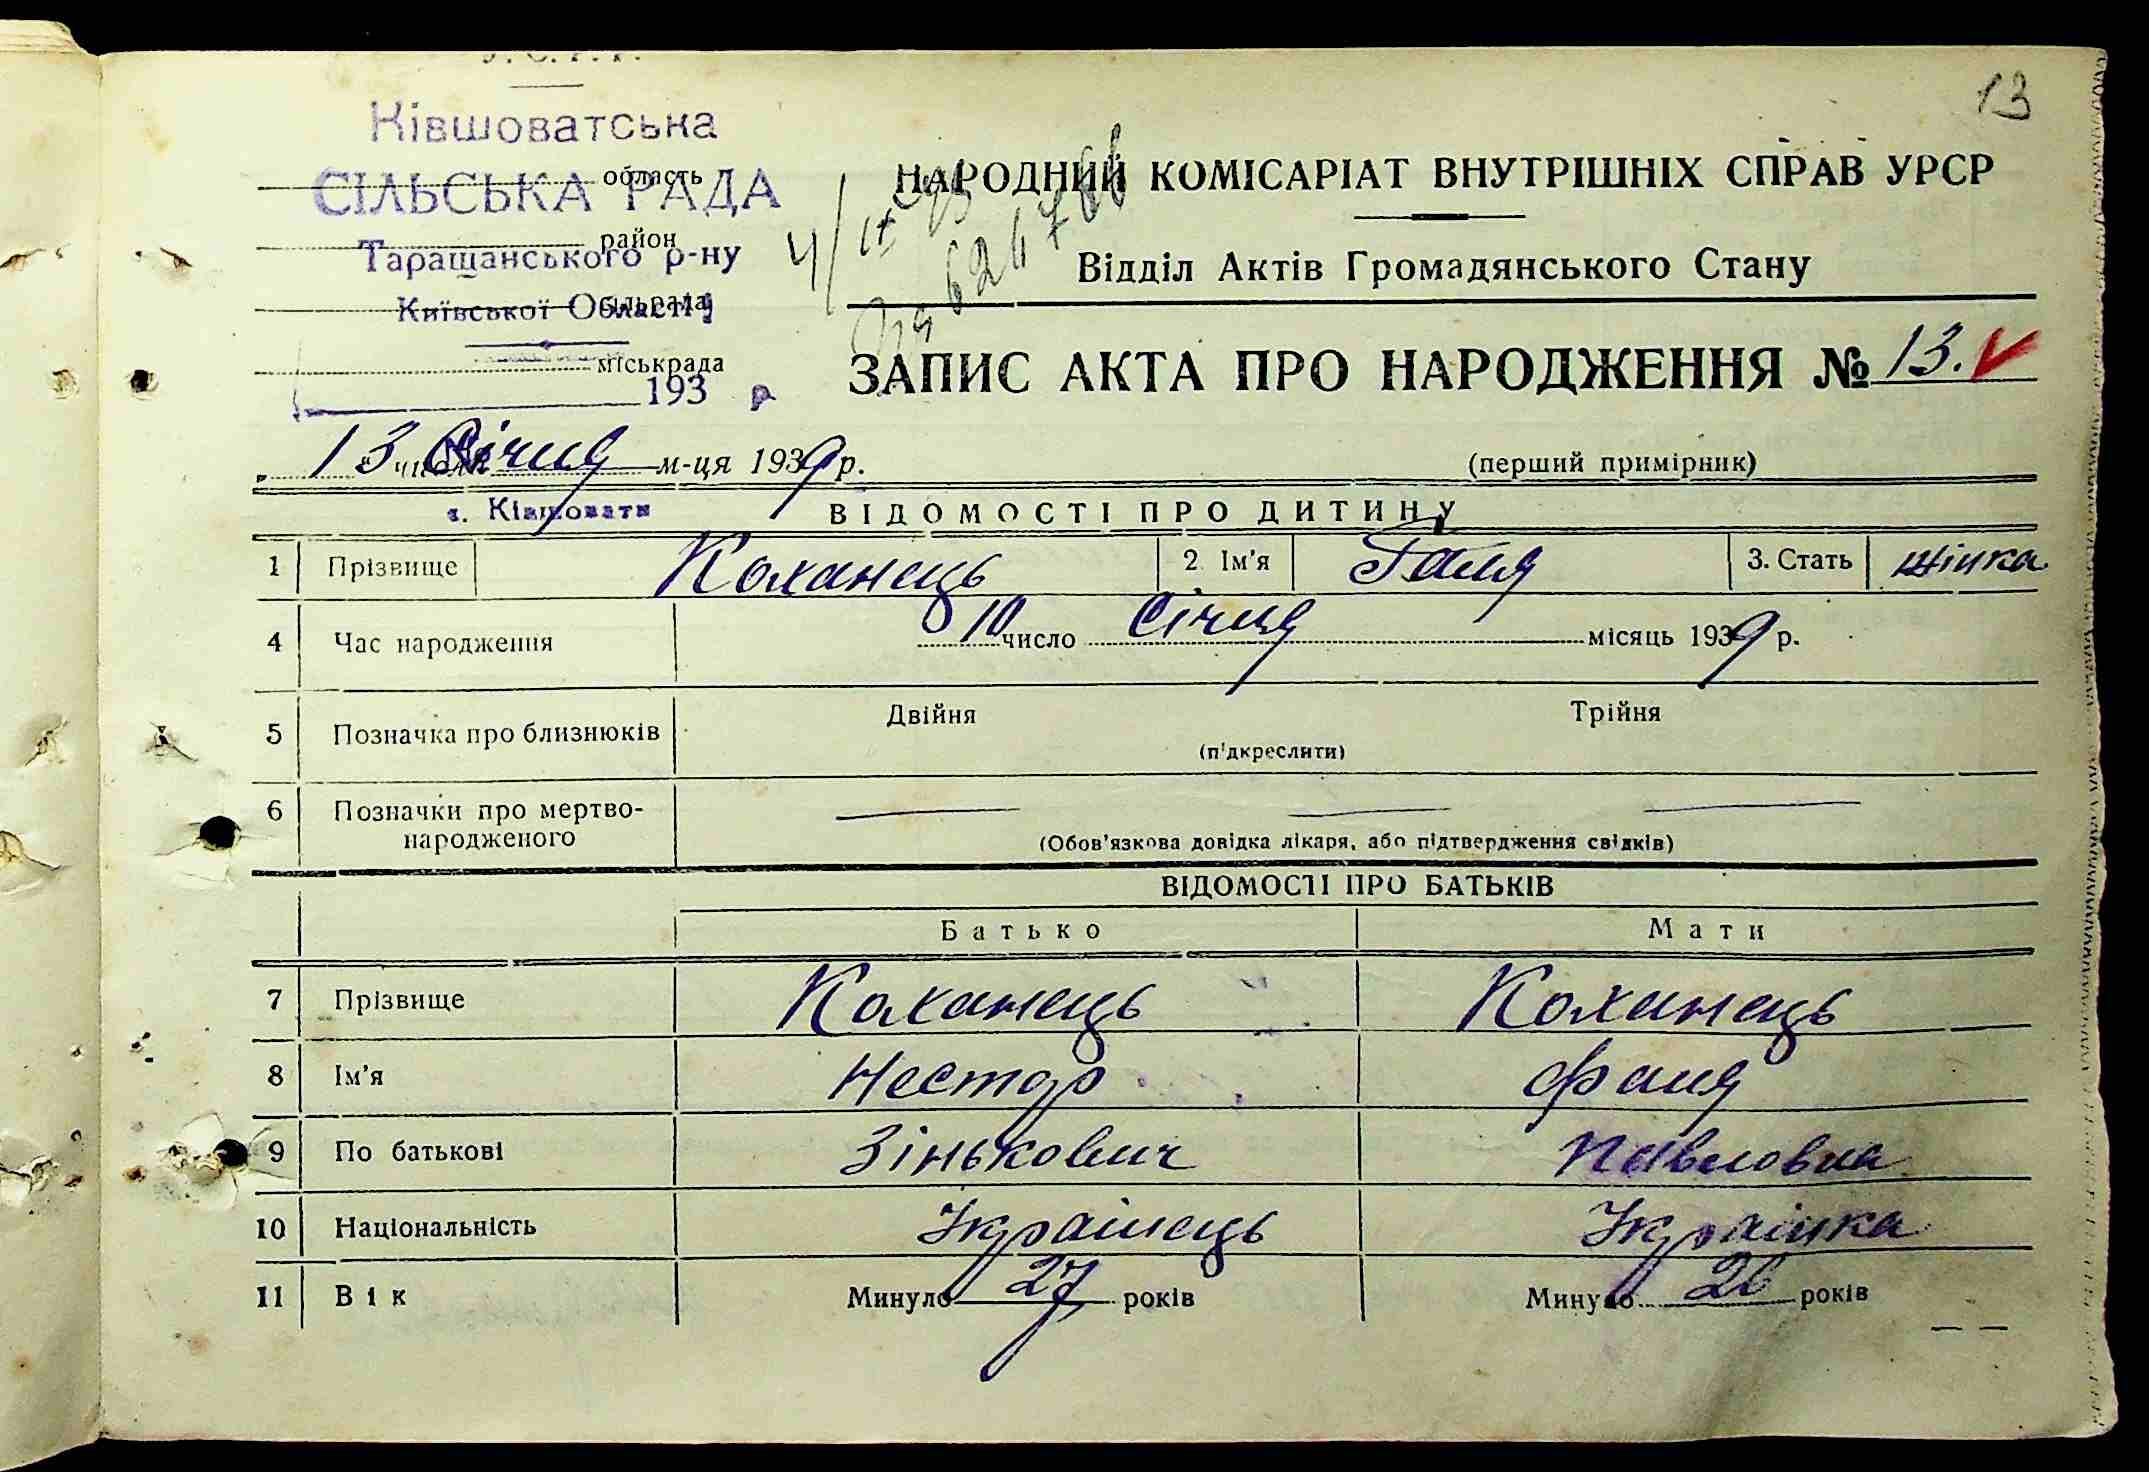 13
У. С. Р. Р.
Ківшоватська
СІЛЬСЬКА РАДА
область
Таращанського р-ну
район
Київської Області
сільрада
міськрада
193 р
НАРОДНИЙ КОМІСАРІАТ ВНУТРІШНІХ СПРАВ УРСР
Відділ Актів Громадянського Стану
ЗАПИС АКТА ПРО НАРОДЖЕННЯ № 13.
„ 13 " числа Січня м-ця 1939 р.
(перший примірник)
с. Ківшовати
ВІДОМОСТІ ПРО ДИТИНУ
1 Прізвище Коханець 2. Ім'я Галя 3. Стать жінка
4 Час народження 10 число Січня місяць 1939 р.
5 Позначка про близнюків Двійня Трійня
(підкреслити)
6 Позначки про мертво-
народженого
(Обов'язкова довідка лікаря, або підтвердження свідків)
ВІДОМОСТІ ПРО БАТЬКІВ
Батько Мати
7 Прізвище Коханець Коханець
8 Ім'я Нестор Фаня
9 По батькові Зінькович Павловна
10 Національність Українець Українка
11 Вік Минуло 27 років Минуло 26 років